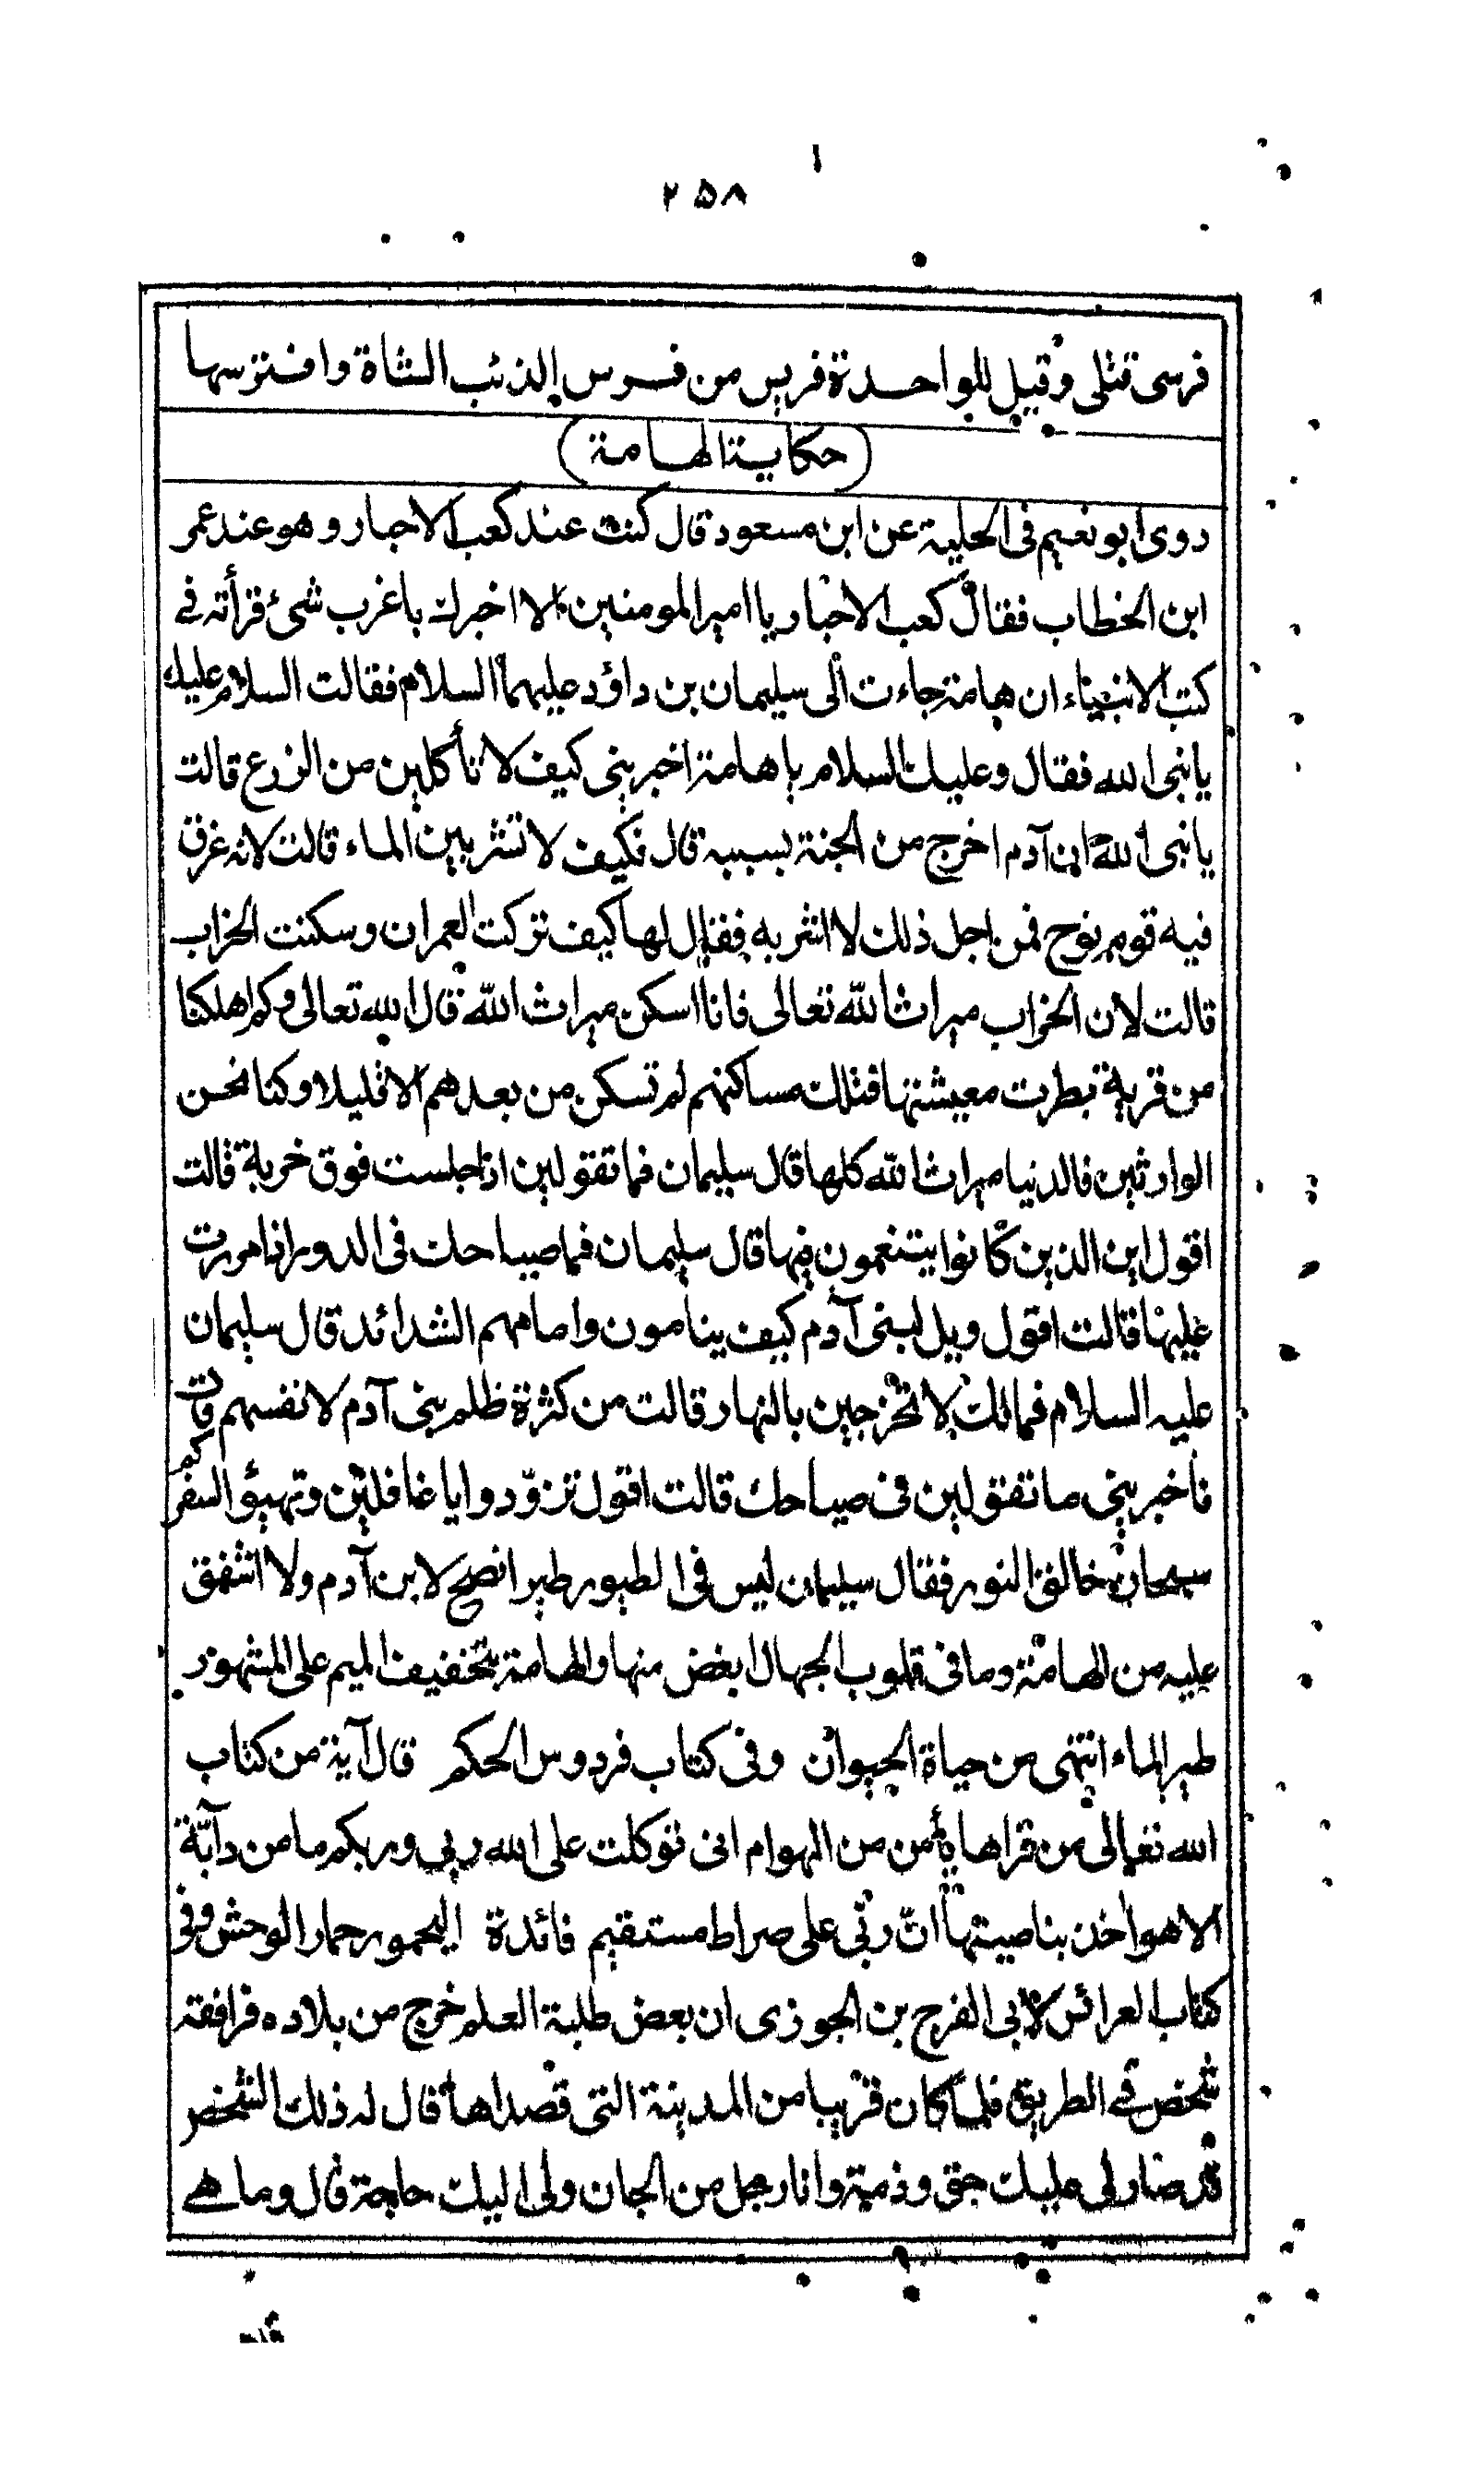 ٢٥٨
فرسى قتلى وقيل للواحدة فريس من فرس الذئب الشاة وافترسها
(حكاية الهامة)
روى ابو نعيم فى الحلية عن ابن مسعود قال كنت عند كعب الاحبار وهو عند عمر
ابن الخطاب فقال كعب الاحبار يا امير المومنين الا اخبرك باغرب شئ قرأته في
كتب الانبياء ان هامة جاءت الى سليمان بن داؤد عليهما السلام فقالت السلام عليك
يا نبى الله فقال وعليك السلام يا هامة اخبرينى كيف لا تأكلين من الزرع قالت
يا نبى الله ان آدم اخرج من الجنة بسببه قال فكيف لا تشربين الماء قالت لانه غرق
فيه قوم نوح فمن اجل ذلك لا اشربه فقال لها كيف تركت العمران وسكنت الخراب
قالت لان الخراب ميراث الله تعالى فانا اسكن ميراث الله قال الله تعالى وكم اهلكنا
من قرية بطرت معيشتها فتلك مساكنهم لم تسكن من بعدهم الا قليلا وكنا نحن
الوارثين فالدنيا ميراث الله كلها قال سليمان فما تقولين اذا جلست فوق خربة قالت
اقول اين الذين كانوا يتنعمون فيها قال سليمان فما صياحك فى الدور اذا مررت
عليها قالت اقول ويل لبنى آدم كيف ينامون وامامهم الشدائد قال سليمان
عليه السلام فمالك لا تخرجين بالنهار قالت من كثرة ظلم بنى آدم لانفسهم قال
فأخبرينى ما تقولين فى صياحك قالت اقول تزوّدوا يا غافلين وتهيؤ السفركم
سبحان خالق النور فقال سليمان ليس فى الطيور طير انصح لابن آدم ولا اشفق
عليه من الهامة وما فى قلوب الجهال ابغض منها والهامة بتخفيف الميم على المشهور
طير الماء انتهى من حياة الحيوان وفى كتاب فردوس الحكم قال آية من كتاب
الله تعالى من قراها يأمن من الهوام انى توكلت على الله ربى وربكم ما من دآبّة
الا هو آخذ بناصيتها انّ ربّى على صراط مستقيم فائدة اليحمور حمار الوحش وفى
كتاب العرائس لابى الفرج بن الجوزى ان بعض طلبة العلم خرج من بلاده فرافقه
شخص في الطريق فلما كان قريبا من المدينة التى قصداها قال له ذلك الشخص
قد صار لى عليك حق وذمة وانا رجل من الجان ولى اليك حاجة قال وما هے